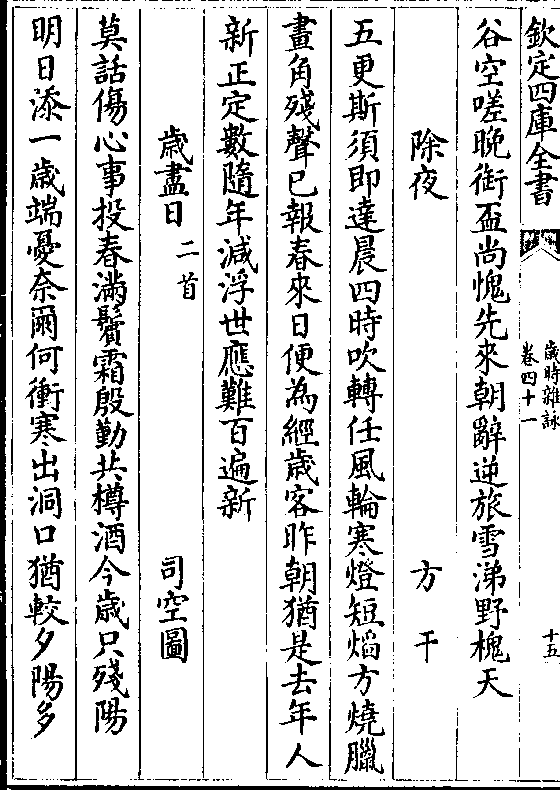 欽定四庫全書
歲時雜詠
卷四十一
十五
谷空嗟晚銜盃尚愧先來朝辭逆旅雪涕野槐天
除夜
方干
五更斯須即達晨四時吹轉任風輪寒燈短熖方燒臘
畫角殘聲已報春來日便為經歲客昨朝猶是去年人
新正定數隨年減浮世應難百遍新
歲盡日二首
司空圖
莫話傷心事投春滿鬢霜殷勤共樽酒今歲只殘陽
明日添一歲端憂奈爾何衝寒出洞口猶較夕陽多